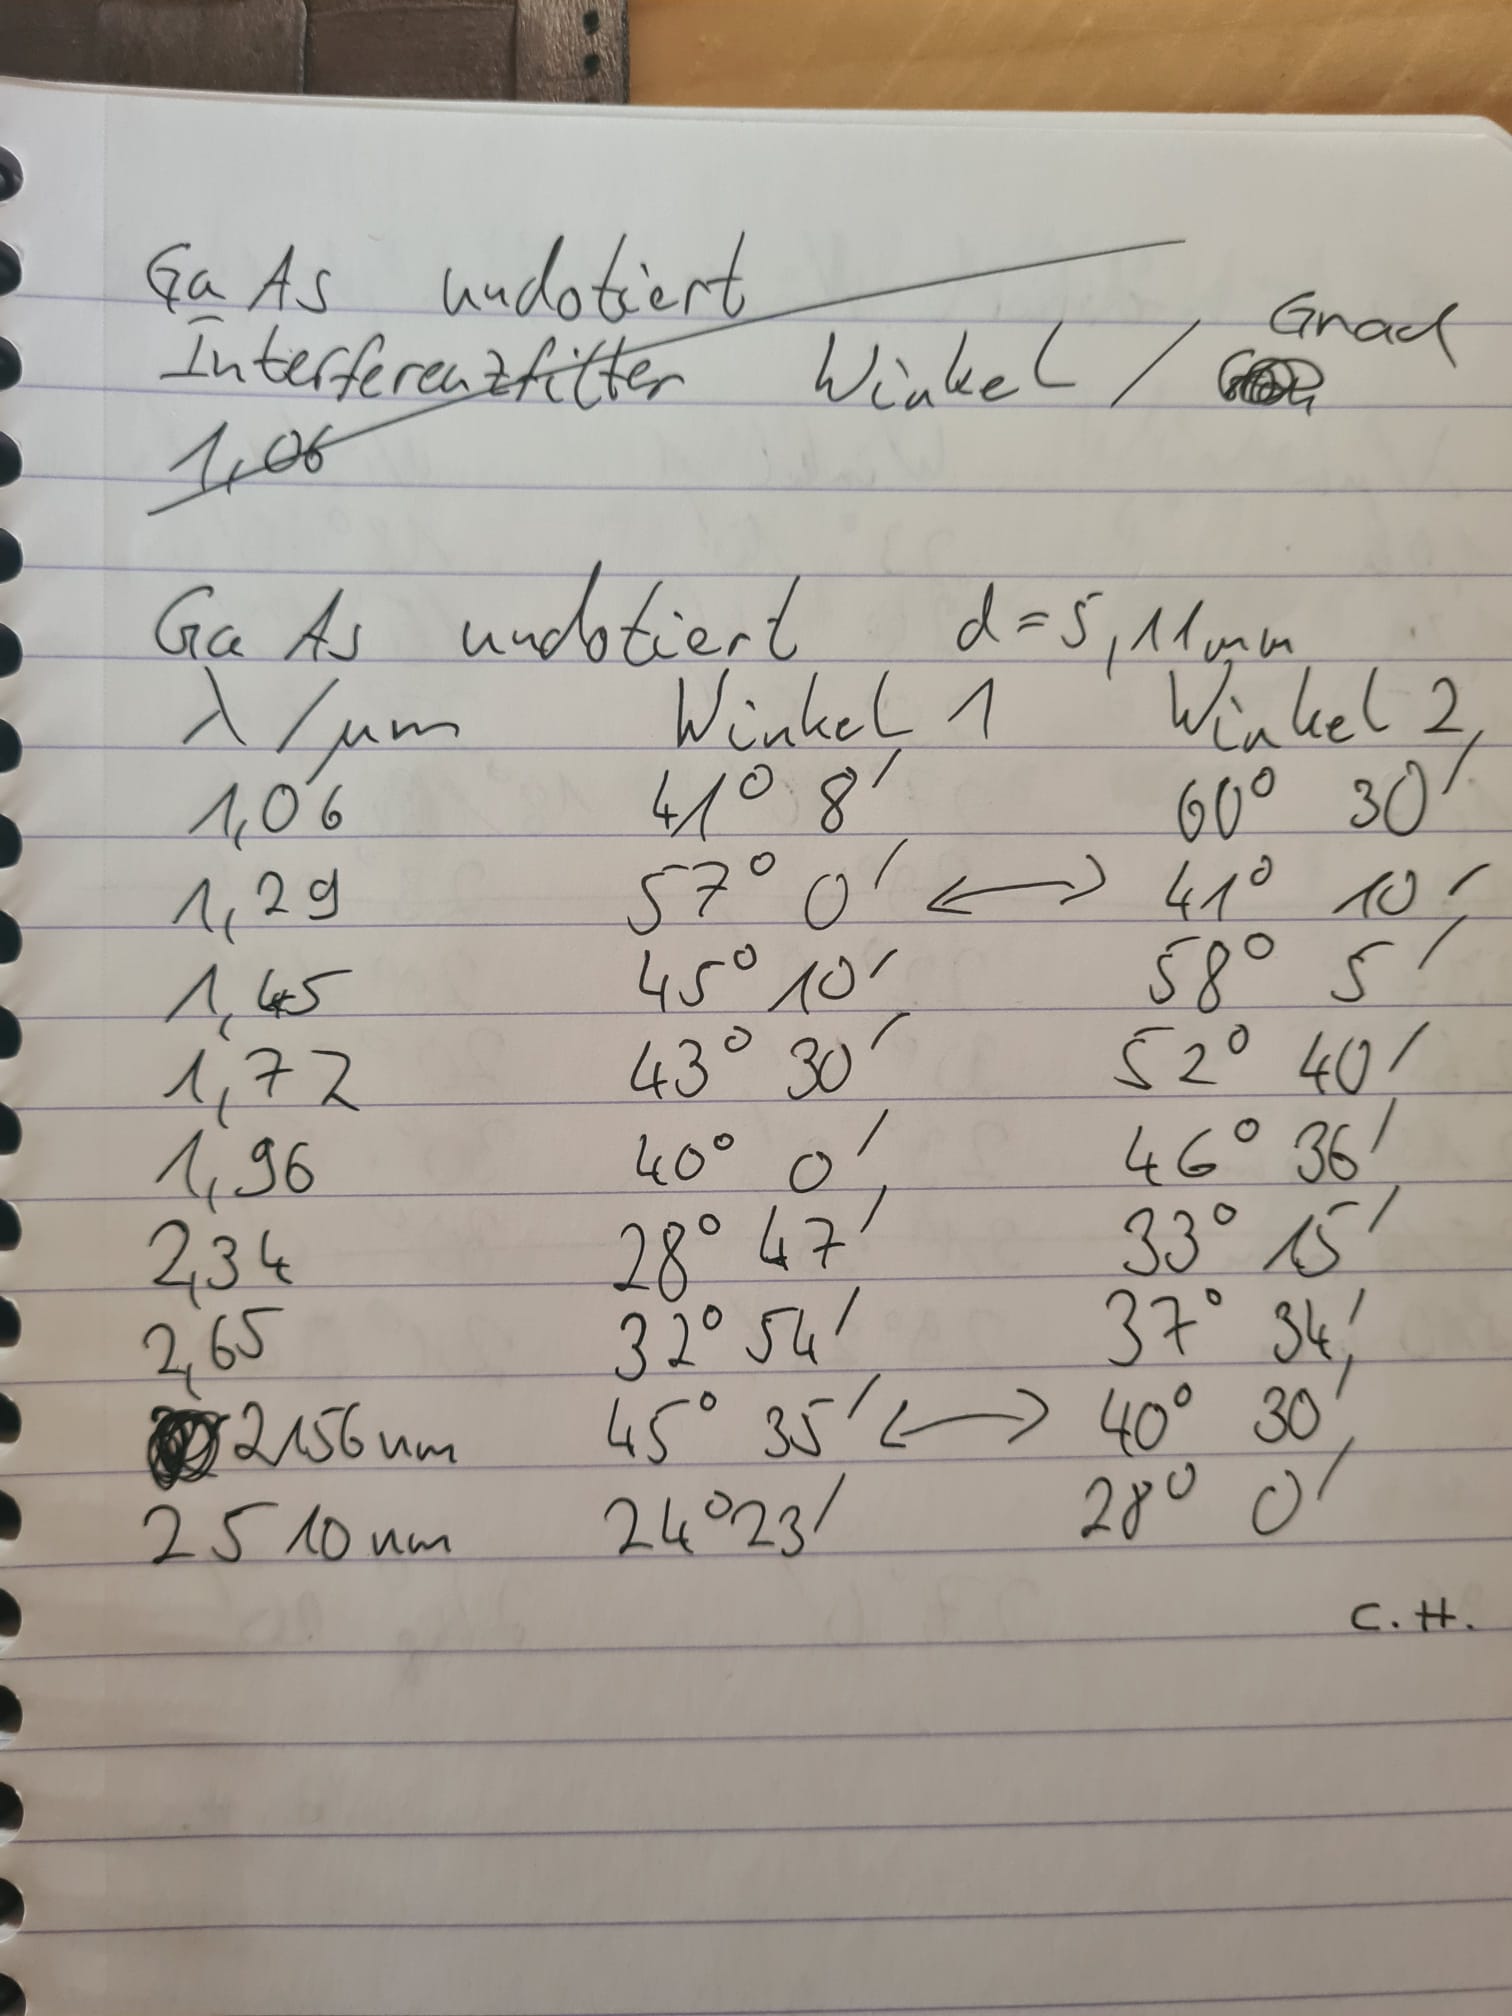 GaAs undotiert
Interferenzfilter Winkel / Grad
1,06
GaAs undotiert d = 5,11mm
λ /μm Winkel 1 Winkel 2
1,06 41° 8' 60° 30'
1,29 57° 0' ↔ 41° 10'
1,45 45° 10' 58° 5'
1,72 43° 30' 52° 40'
1,96 40° 0' 46° 36'
2,34 28° 47' 33° 15'
2,65 32° 54' 37° 34'
2156nm 45° 35' ↔ 40° 30'
2510nm 24° 23' 28° 0'
C.H.